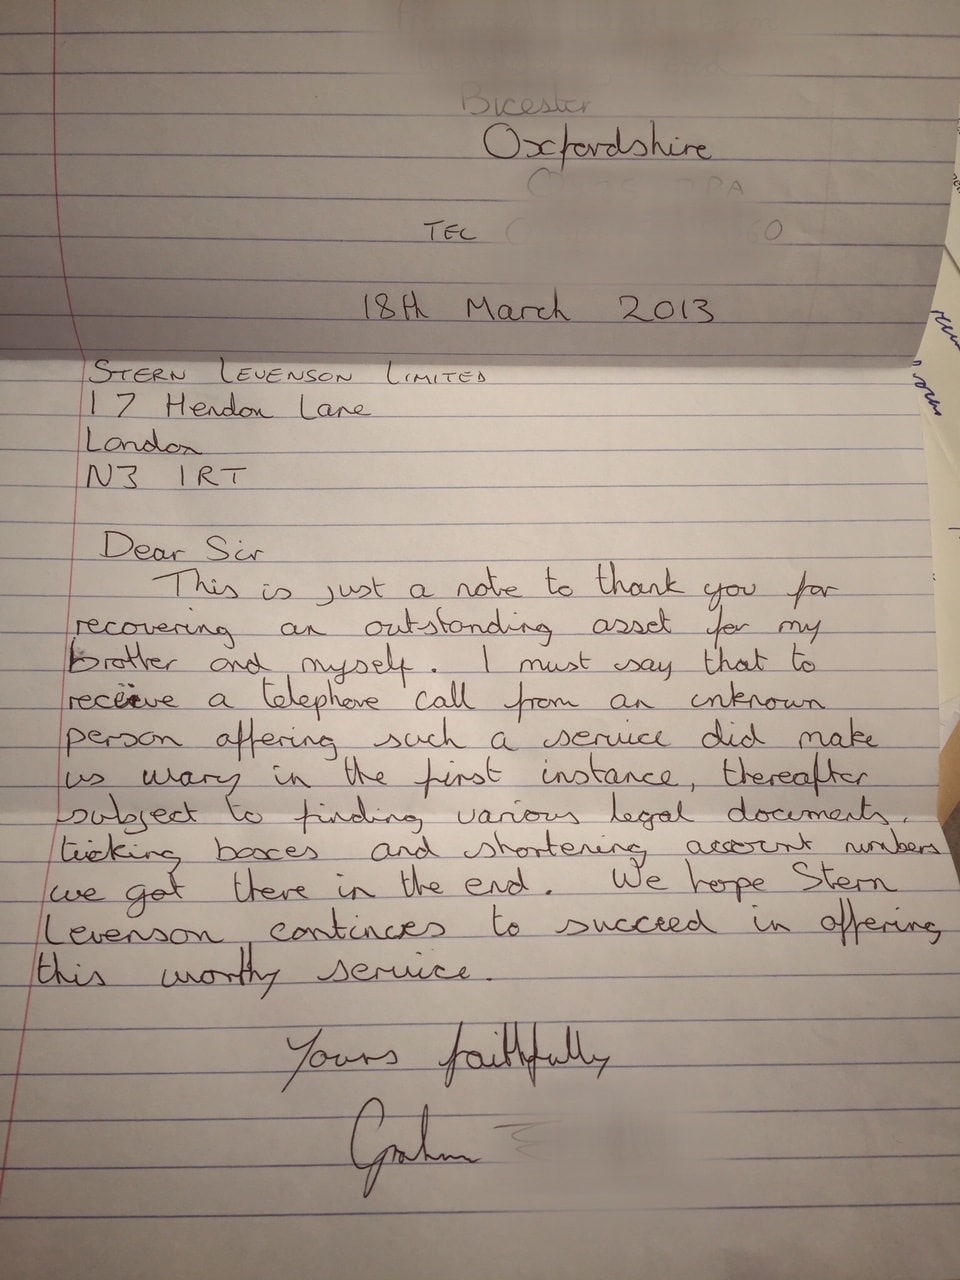 Bicester
Oxfordshire
TEL
18th March 2013
STERN LEVENSON LIMITED
17 Hendon Lane
London
N3 1RT
Dear Sir
This is just a note to thank you for
recovering an outstanding asset for my
brother and myself. I must say that to
receive a telephone call from an unknown
person offering such a service did make
us wary in the first instance, thereafter
subject to finding various legal documents,
ticking boxes and shortening account numbers
we got there in the end. We hope Stern
Levenson continues to succeed in offering
this worthy service.
Yours faithfully
Graham